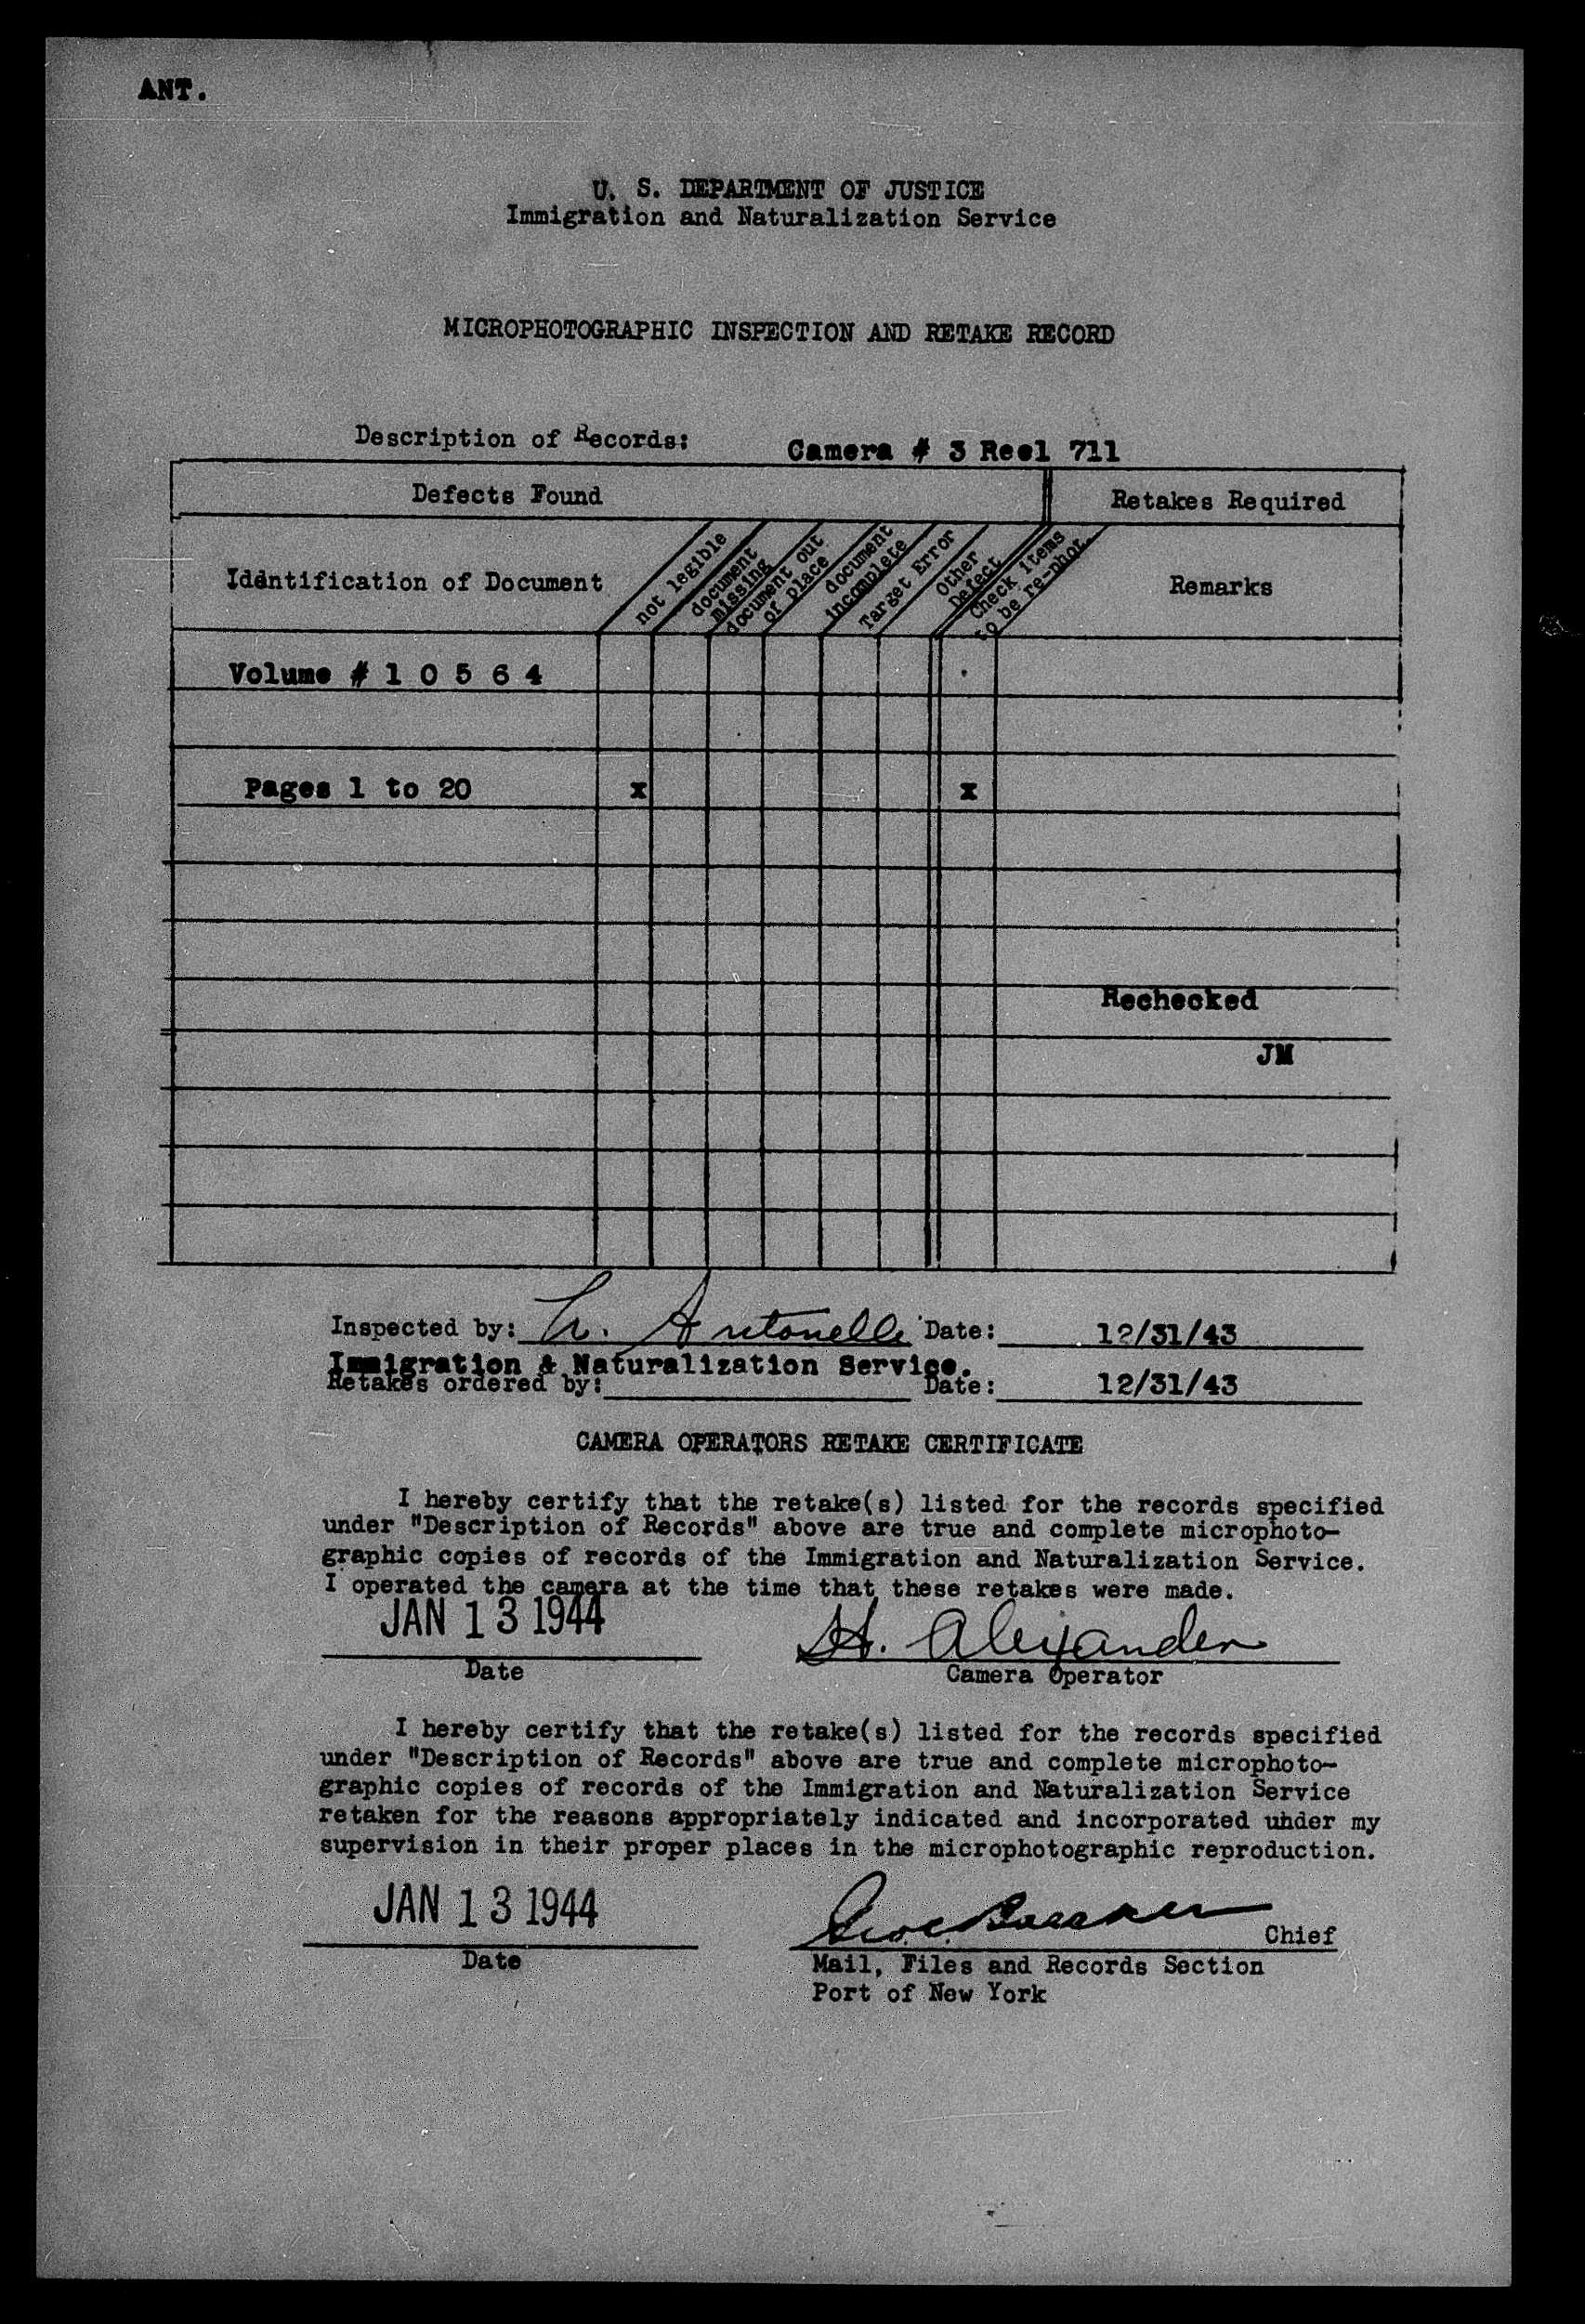 ANT.
U. S. DEPARTMENT OF JUSTICE
Immigration and Naturalization Service
MICROPHOTOGRAPHIC INSPECTION AND RETAKE RECORD
Description of Records: Camera # 3 Reel 711
Defects Found Retakes Required
Identification of Document
not legible
document
missing
document out
of place
document
incomplete
Target Error
Other
Defect
Check items
to be re-phot.
Remarks
Volume # 1 0 5 6 4
Pages 1 to 20 x x
Rechecked
JM
Inspected by: Antonelli Date: 12/31/43
Immigration & Naturalization Service.
Retakes ordered by: Date: 12/31/43
CAMERA OPERATORS RETAKE CERTIFICATE
I hereby certify that the retake(s) listed for the records specified
under "Description of Records" above are true and complete microphoto-
graphic copies of records of the Immigration and Naturalization Service.
I operated the camera at the time that these retakes were made.
JAN 13 1944 H. Alexander
Date Camera Operator
I hereby certify that the retake(s) listed for the records specified
under "Description of Records" above are true and complete microphoto-
graphic copies of records of the Immigration and Naturalization Service
retaken for the reasons appropriately indicated and incorporated under my
supervision in their proper places in the microphotographic reproduction.
JAN 13 1944 Chief
Date Mail, Files and Records Section
Port of New York